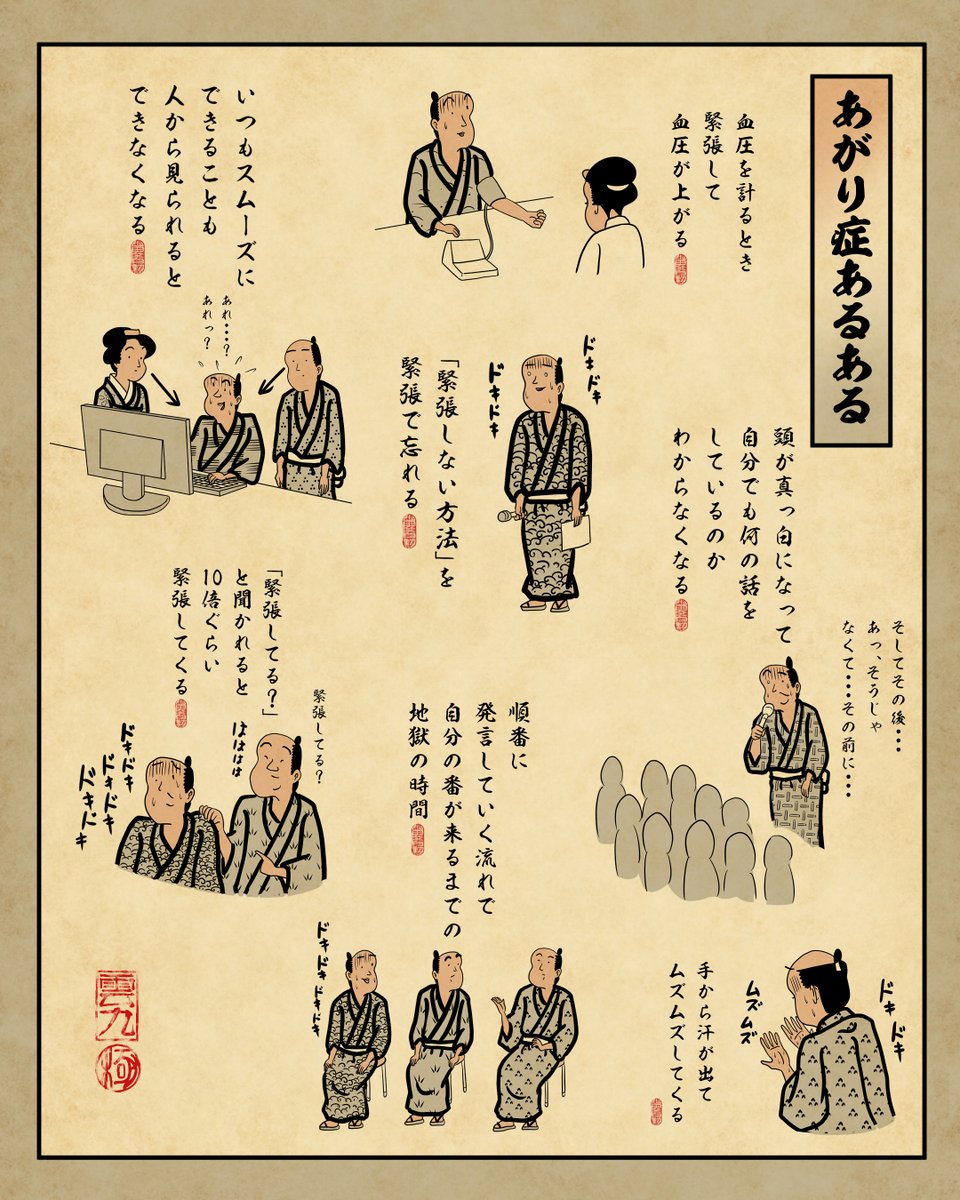 あがり症あるある
血圧を計るとき
緊張して
血圧が上がる
いつもスムーズに
できることも
人から見られると
できなくなる
あれ・・・?
あれっ?
ドキドキ
ドキドキ
「緊張しない方法」を
緊張で忘れる
頭が真っ白になって
自分でも何の話を
しているのか
わからなくなる
そしてその後・・・
あっ、そうじゃ
なくて・・・その前に・・・
「緊張してる?」
と聞かれると
10倍ぐらい
緊張してくる
緊張してる?
はははは
ドキドキ
ドキドキ
ドキドキ
順番に
発言していく流れで
自分の番が来るまでの
地獄の時間
ドキドキドキドキ
手から汗が出て
ムズムズしてくる
ドキドキ
ムズムズ